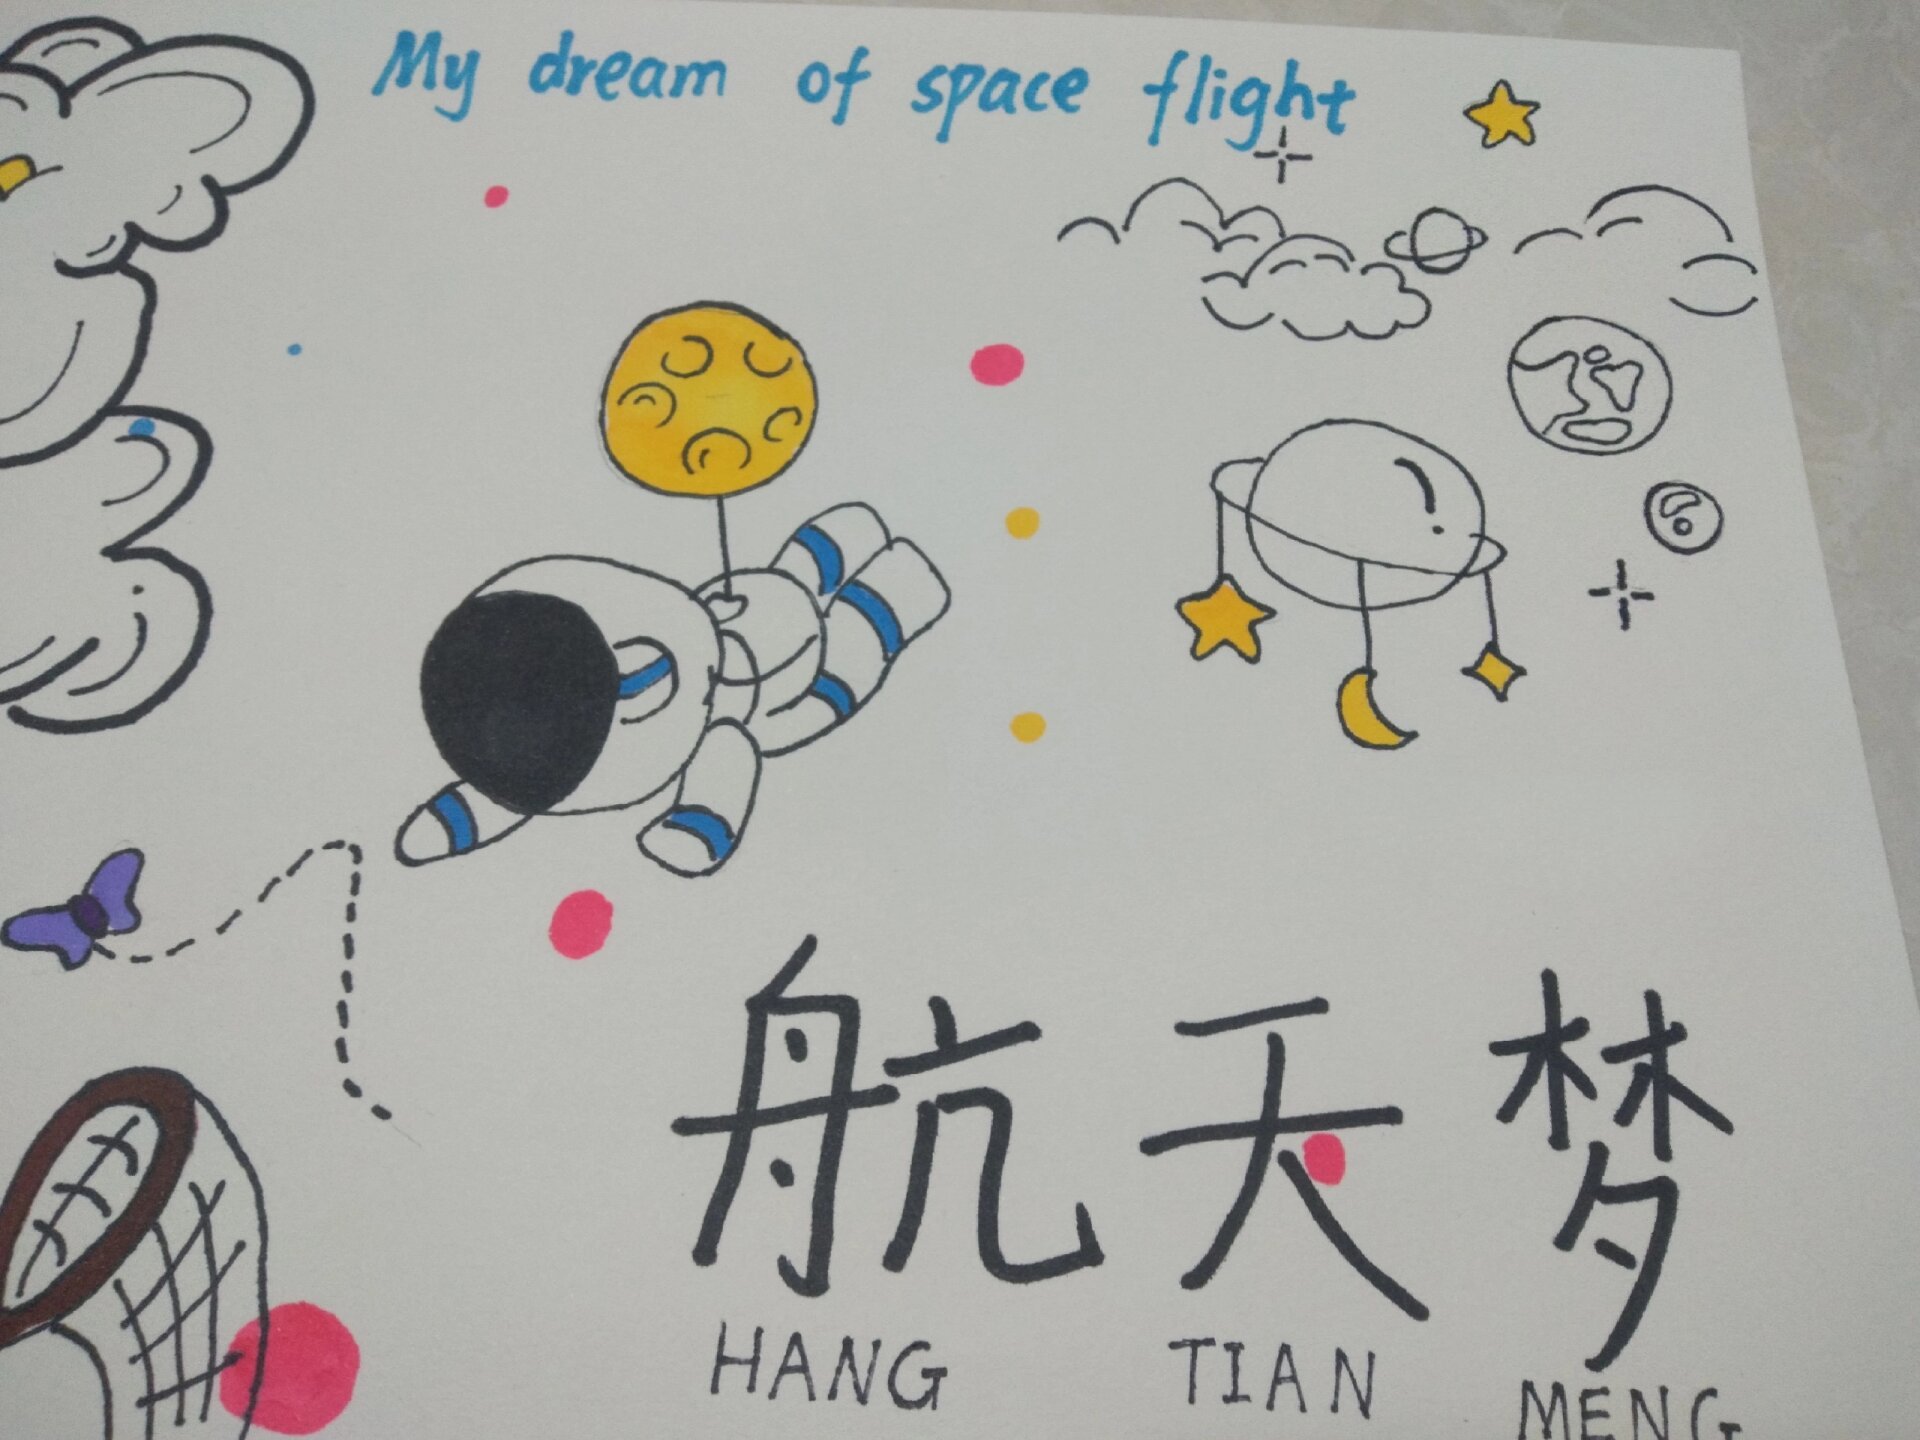 My dream of space flight
航天梦
HANG TIAN MENG